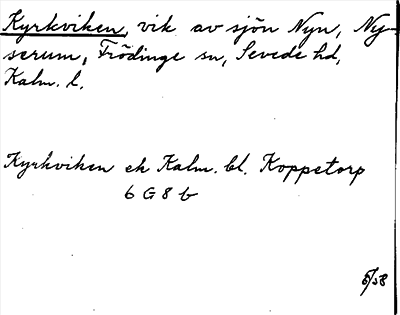 Kyrkviken, vik av sjön Nyn, Ny-
serum, Frödinge sn, Sevede hd,
Kalm. l.
Kyrkviken ek Kalm. bl. Koppetorp
6 G 8 b
5/58